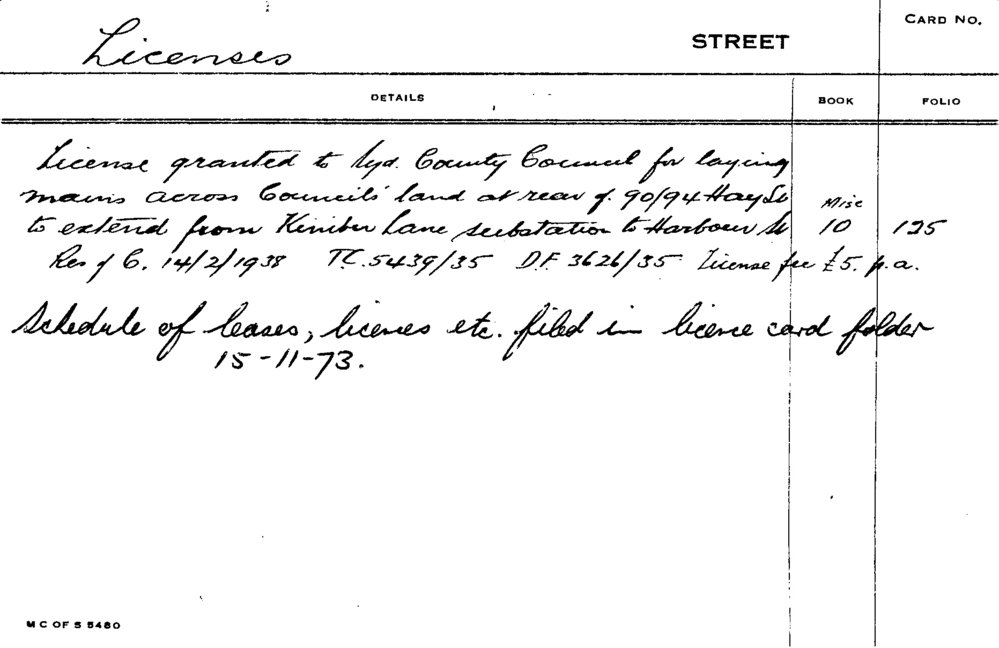 Licenses STREET CARD No.
DETAILS BOOK FOLIO
License granted to Syd. County Council for laying
mains across Council's land at rear of 90/94 Hay St Misc
to extend from Kimber Lane substation to Harbour St 10 125
Res of C. 14/2/1938 T.C. 5439/35 D.F. 3626/35 License fee £5. p.a.
Schedule of leases, licences etc. filed in licence card folder
15-11-73.
M C OF S 5480